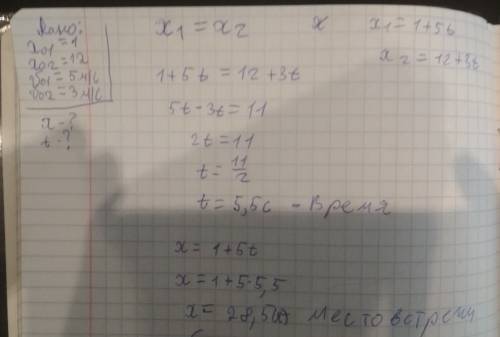 Дано:
x01 = 1
x02 = 12
v01 = 5 м/с
v02 = 3 м/с
x - ?
t - ?
x1 = x2
x
x1 = 1+5t
x2 = 12+3t
1+5t = 12+3t
5t-3t = 11
2t = 11
t = 11/2
t = 5,5с - Время
x = 1+5t
x = 1+5·5,5
x = 28,5 место встречи